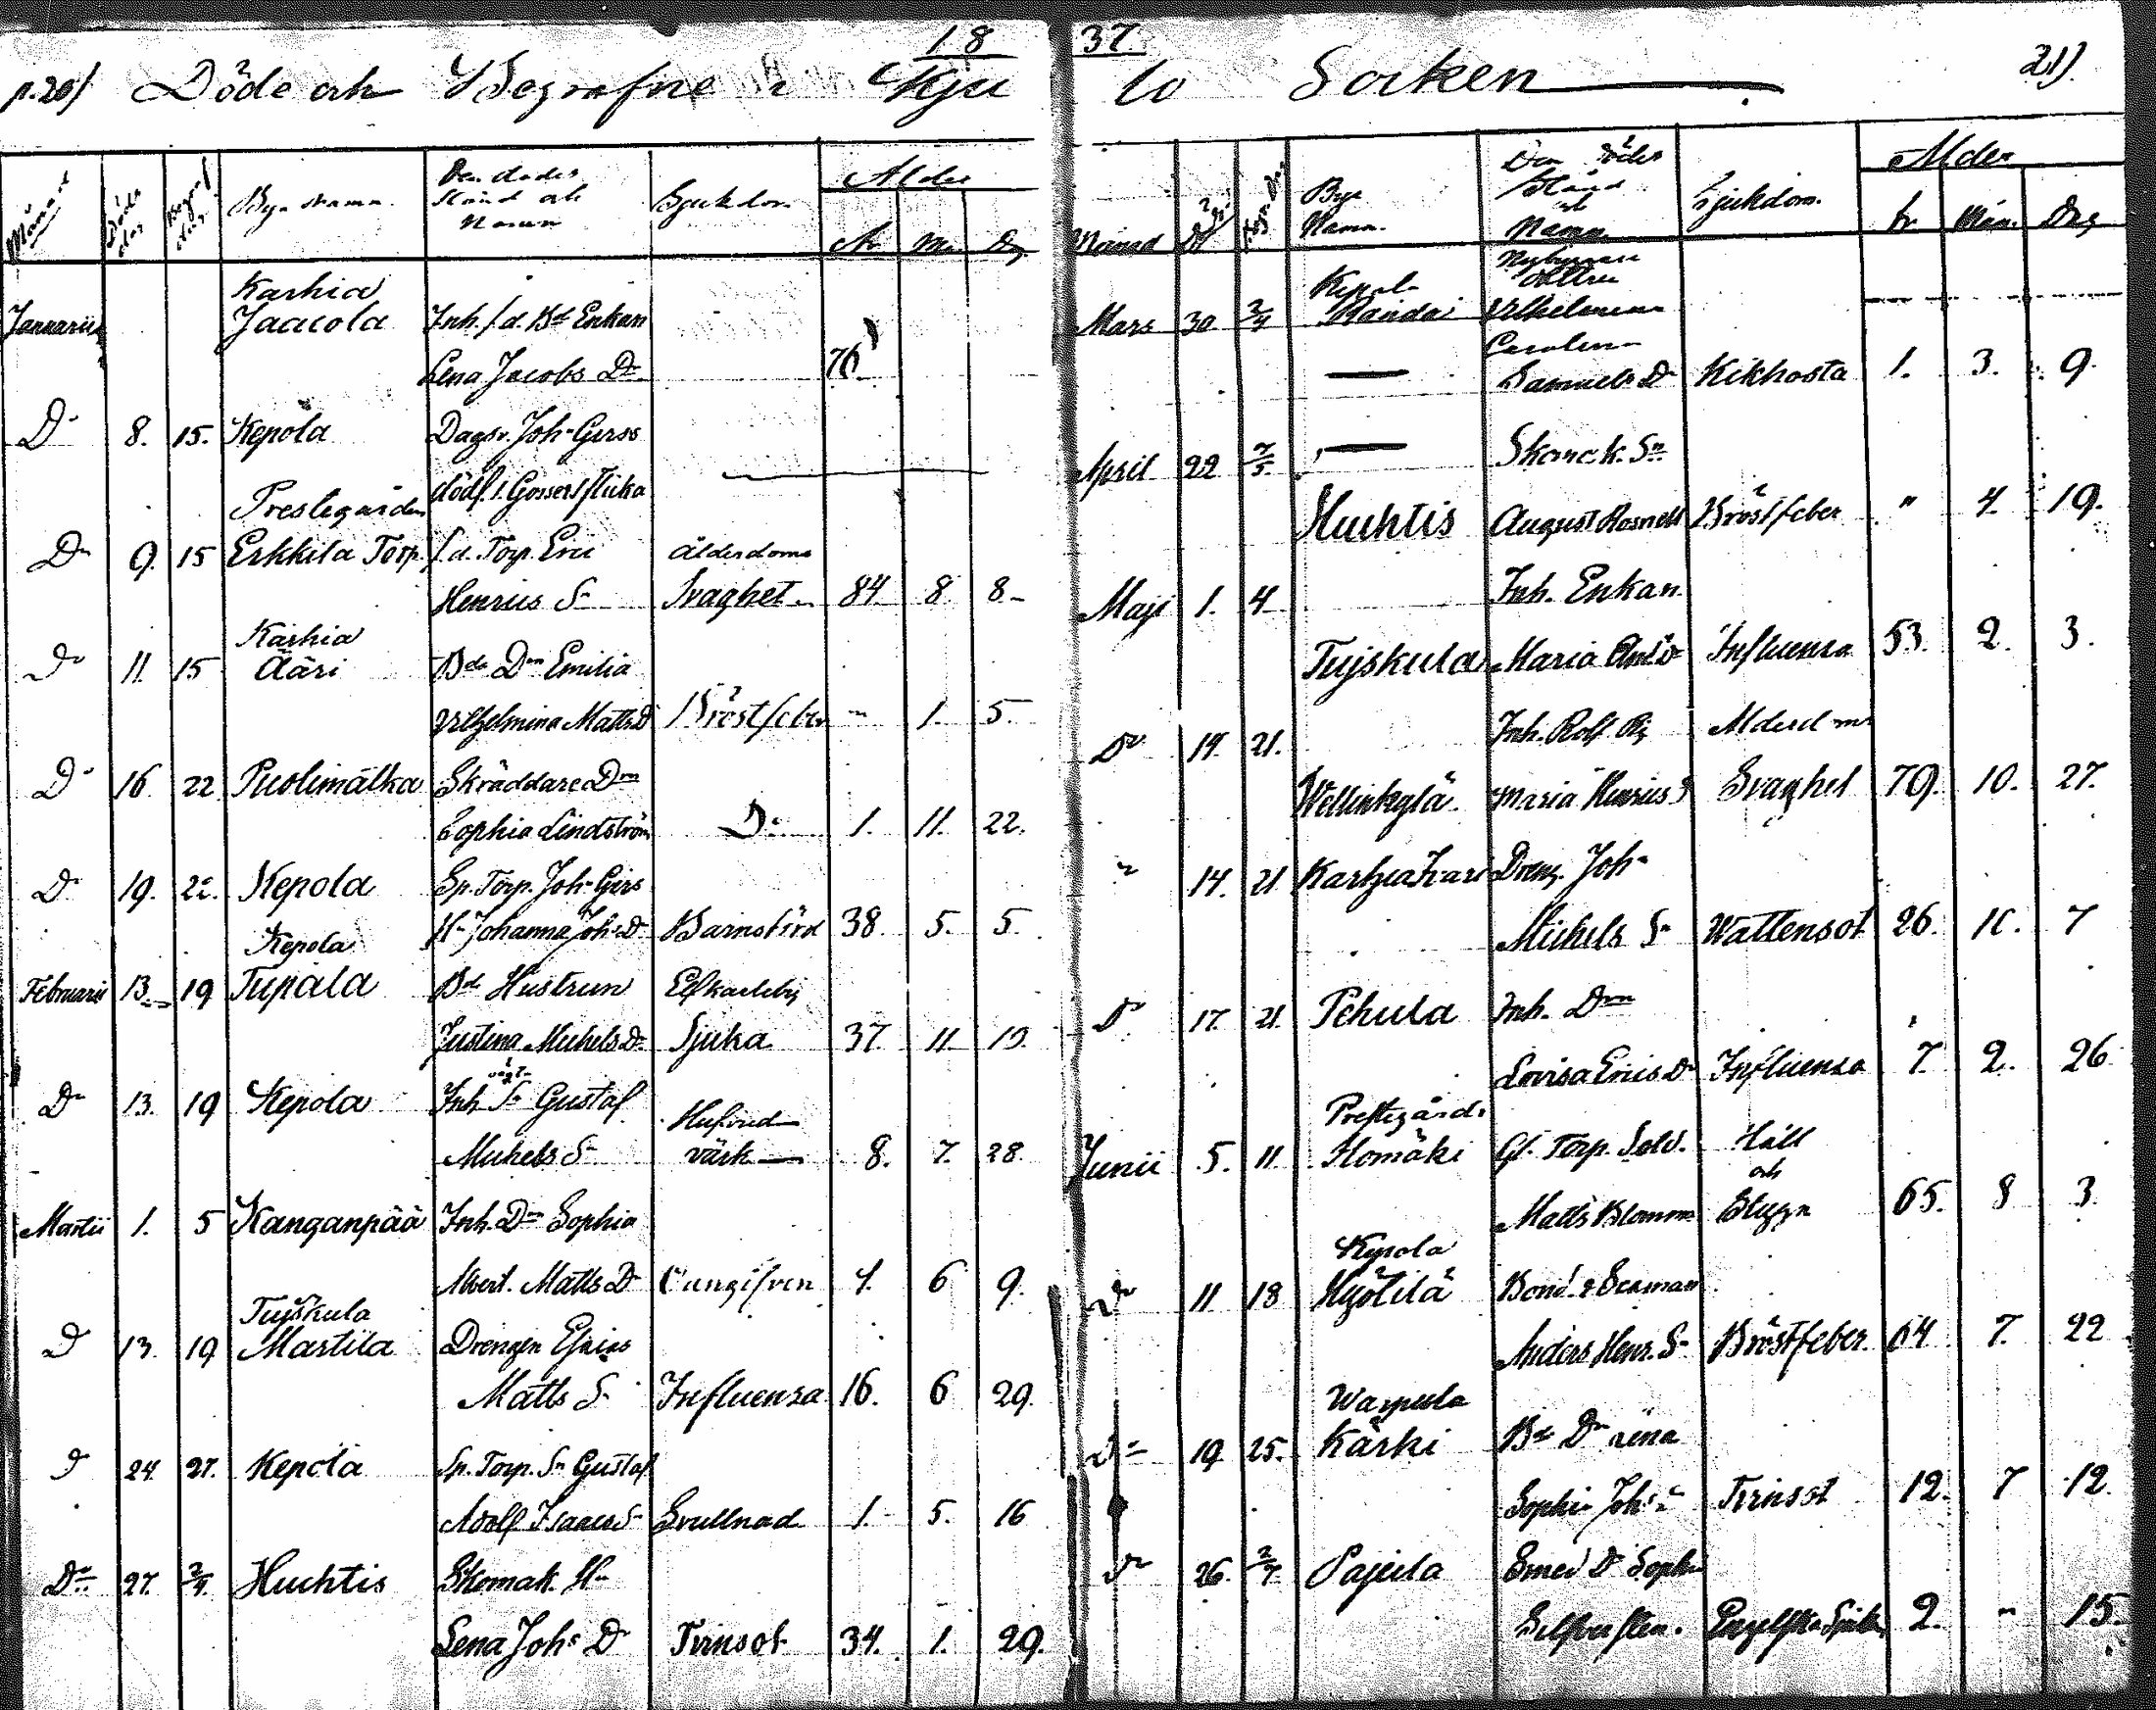 18
p.20) Döde och Begrafne i Kju
Månad Döde dag Begraf dag Byn namn Den dödes Stånd och Namn Sjukdom Ålder
År M. Dag
Karhia
Januarii Jaacola Inh. f.d. Bd Enkan
Lena Jacobs Dr 76
Do 8. 15. Kepola Dagsv. Joh. Gerss
dödf. Gossers flicka
Prestegården
Do 9. 15 Erkkila Torp. f.d. Torp. Eric Ålderdoms
Henrics Sn Svaghet 84 8 8
Karhia
Do 11. 15 Ääri Bde Dr Emilia
Vilhelmina Matts D Bröstfeber " 1. 5.
Do 16. 22 Puolimatka Skräddare Dr
Sophia Lindström Do 1. 11. 22.
Do 19. 22. Kepola Sp. Torp. Joh. Girs
H. Johanna Joh. D Barnsbörd 38 5. 5.
Kepola
Februarii 13. 19 Tupala Bd Hustrun
Justina Michels Dr Sjuka 37 11
Do 13. 19 Kepola Inh Sn Gustaf Hufvud
Michels Sn värk 8. 7. 28
Martii 1. 5 Kanganpää Inh. Dr Sophia
Albert. Matts Dr 4. 6 9.
Tujskula
Do 13. 19 Martila Drengen Efraim
Matts S Influensa 16. 6 29.
Do 24. 27. Kepola Sp. Torp. Sn Gustaf
Adolf Isaacs S Svullnad 1. 5. 16
Do 27. 2/4 Huchtis Skomak. Hu
Lena Joh. Dr Tvinsot 34. 1. 29.
37
lo Socken 21)
Månad Byn Namn. Den Dödes Stånd och Namn Sjukdom. Ålder
År Mån. Dag
Kepola
Mars 30 2/4 Vilhelmina
Carolina
— Samuels D Kikhosta 1. 3. 9.
April 22 7/5. — Skomak. Sn
Huchtis August Rosnell Bröstfeber " 4 19.
Maji 1. 4 Inh. Enkan
Tujskula Maria Influensa 53. 2. 3.
Do 14. 21. Inh. Rolf Ålderdoms
Wellinkylä Maria Henrics D Svaghet 79. 10. 27.
" 14. 21 Karhia Drenge Joh.
Michels Sn Wattensot 26. 11. 7
Do 17. 21. Pehula Inh. Dr
Lovisa Erics D Influensa 7. 2. 26
Prestegårds
Junii 5. 11 Homäki Gl. Torp. Sold. Håll
och
Matts Blomm Stygn 65. 8 3.
Kepola
Do 11 18 Hyötilä
Anders Henr. Sn Bröstfeber 64 7. 22
Warpula
Do 19 25. Kärki Bd Dr Lena
Sophia Joh. Tvinsot 12. 7 12.
Do 26. 2/7 Pajula Smed D Sophia
Silfversten. Engelska Sjukan 2. " 15.